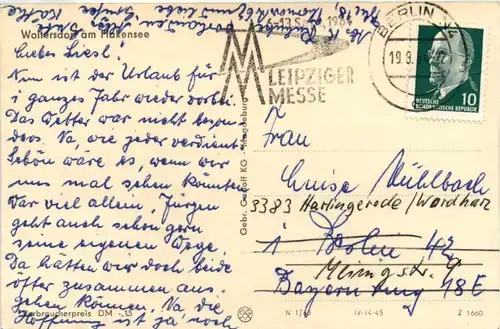 Woltersdorf am Flakensee
Liebes Liesl!
Nun ist der Urlaub für
1 ganzes Jahr wieder vorbei.
Das Wetter war nicht beson-
ders. Na, wie jeder verdient.
Schön wäre es, wenn wir
uns mal sehen könnten
War viel allein, Jürgen
geht auch schon gern
seine eigenen Wege.
Da hätten wir doch beide
öfter zusammen aus-
gehen können. Na die
Hoffnung ist ja noch
Verbraucherpreis DM -,15
Gebr. Garloff KG - Magdeburg
6.-13. 1964
MM
LEIPZIGER
MESSE
BERLIN
19.8.
DEUTSCHE
DEMOKRATISCHE REPUBLIK
10
Frau
Luise Mühlbach
3383 Harlingerode/Nordharz
1 Berlin 42
Bayernring 18E
N 1/69 IV-14-45 Z 1660